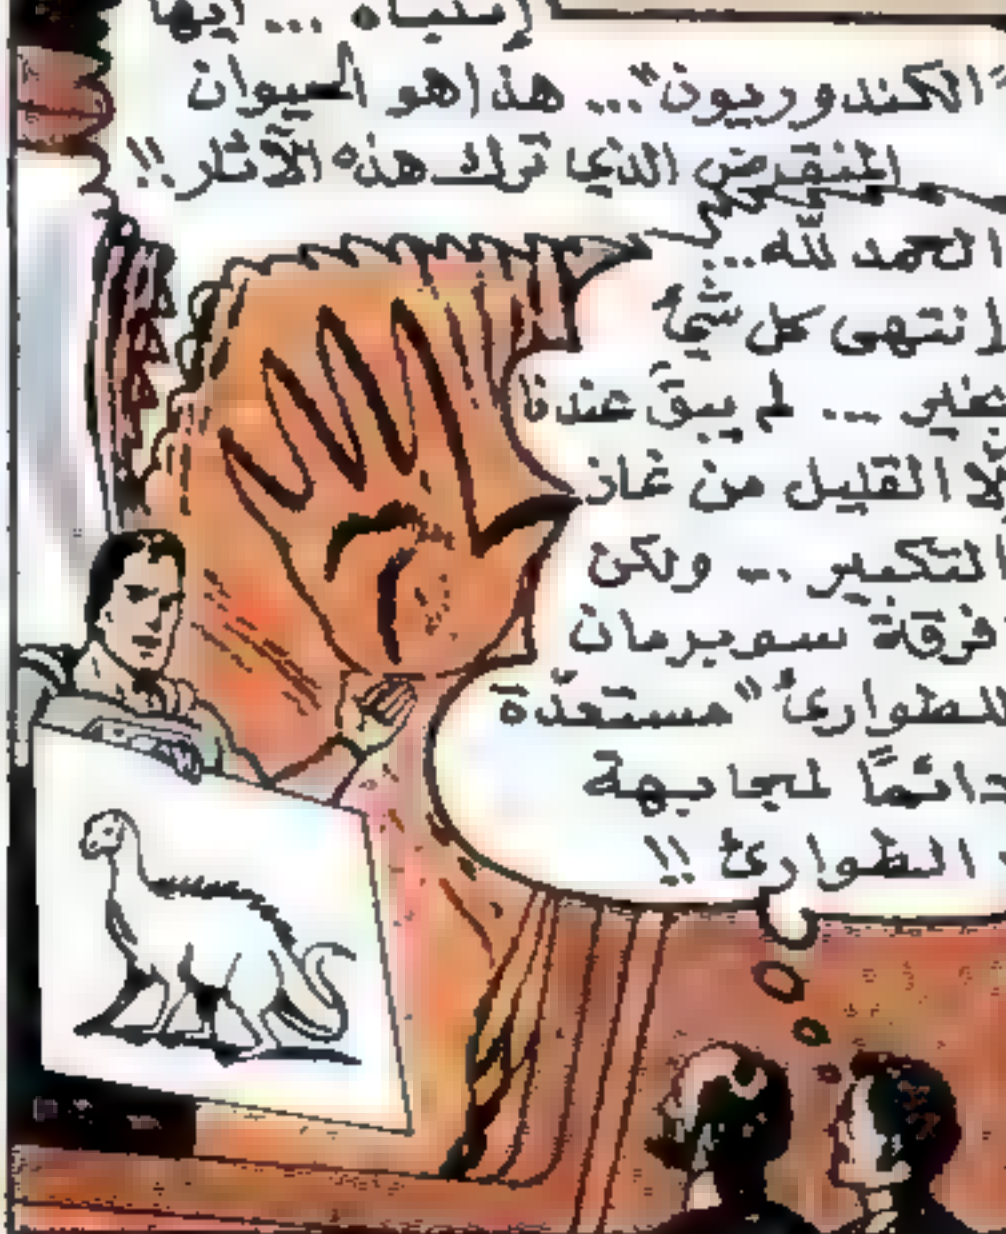 إنتباه ... أيها
"الكندوريون"... هذا هو الحيوان
المنقرض الذي ترك هذه الآثار!!
الحمد لله...
إنتهى كل شيءٍ
بخير ... لم يبقَ عندنا
إلّا القليل من غاز
التكبير ... ولكن
فرقة سوبرمان
للطوارئ" مستعدّة
دائمًا لمجابهة
الطوارئ !!